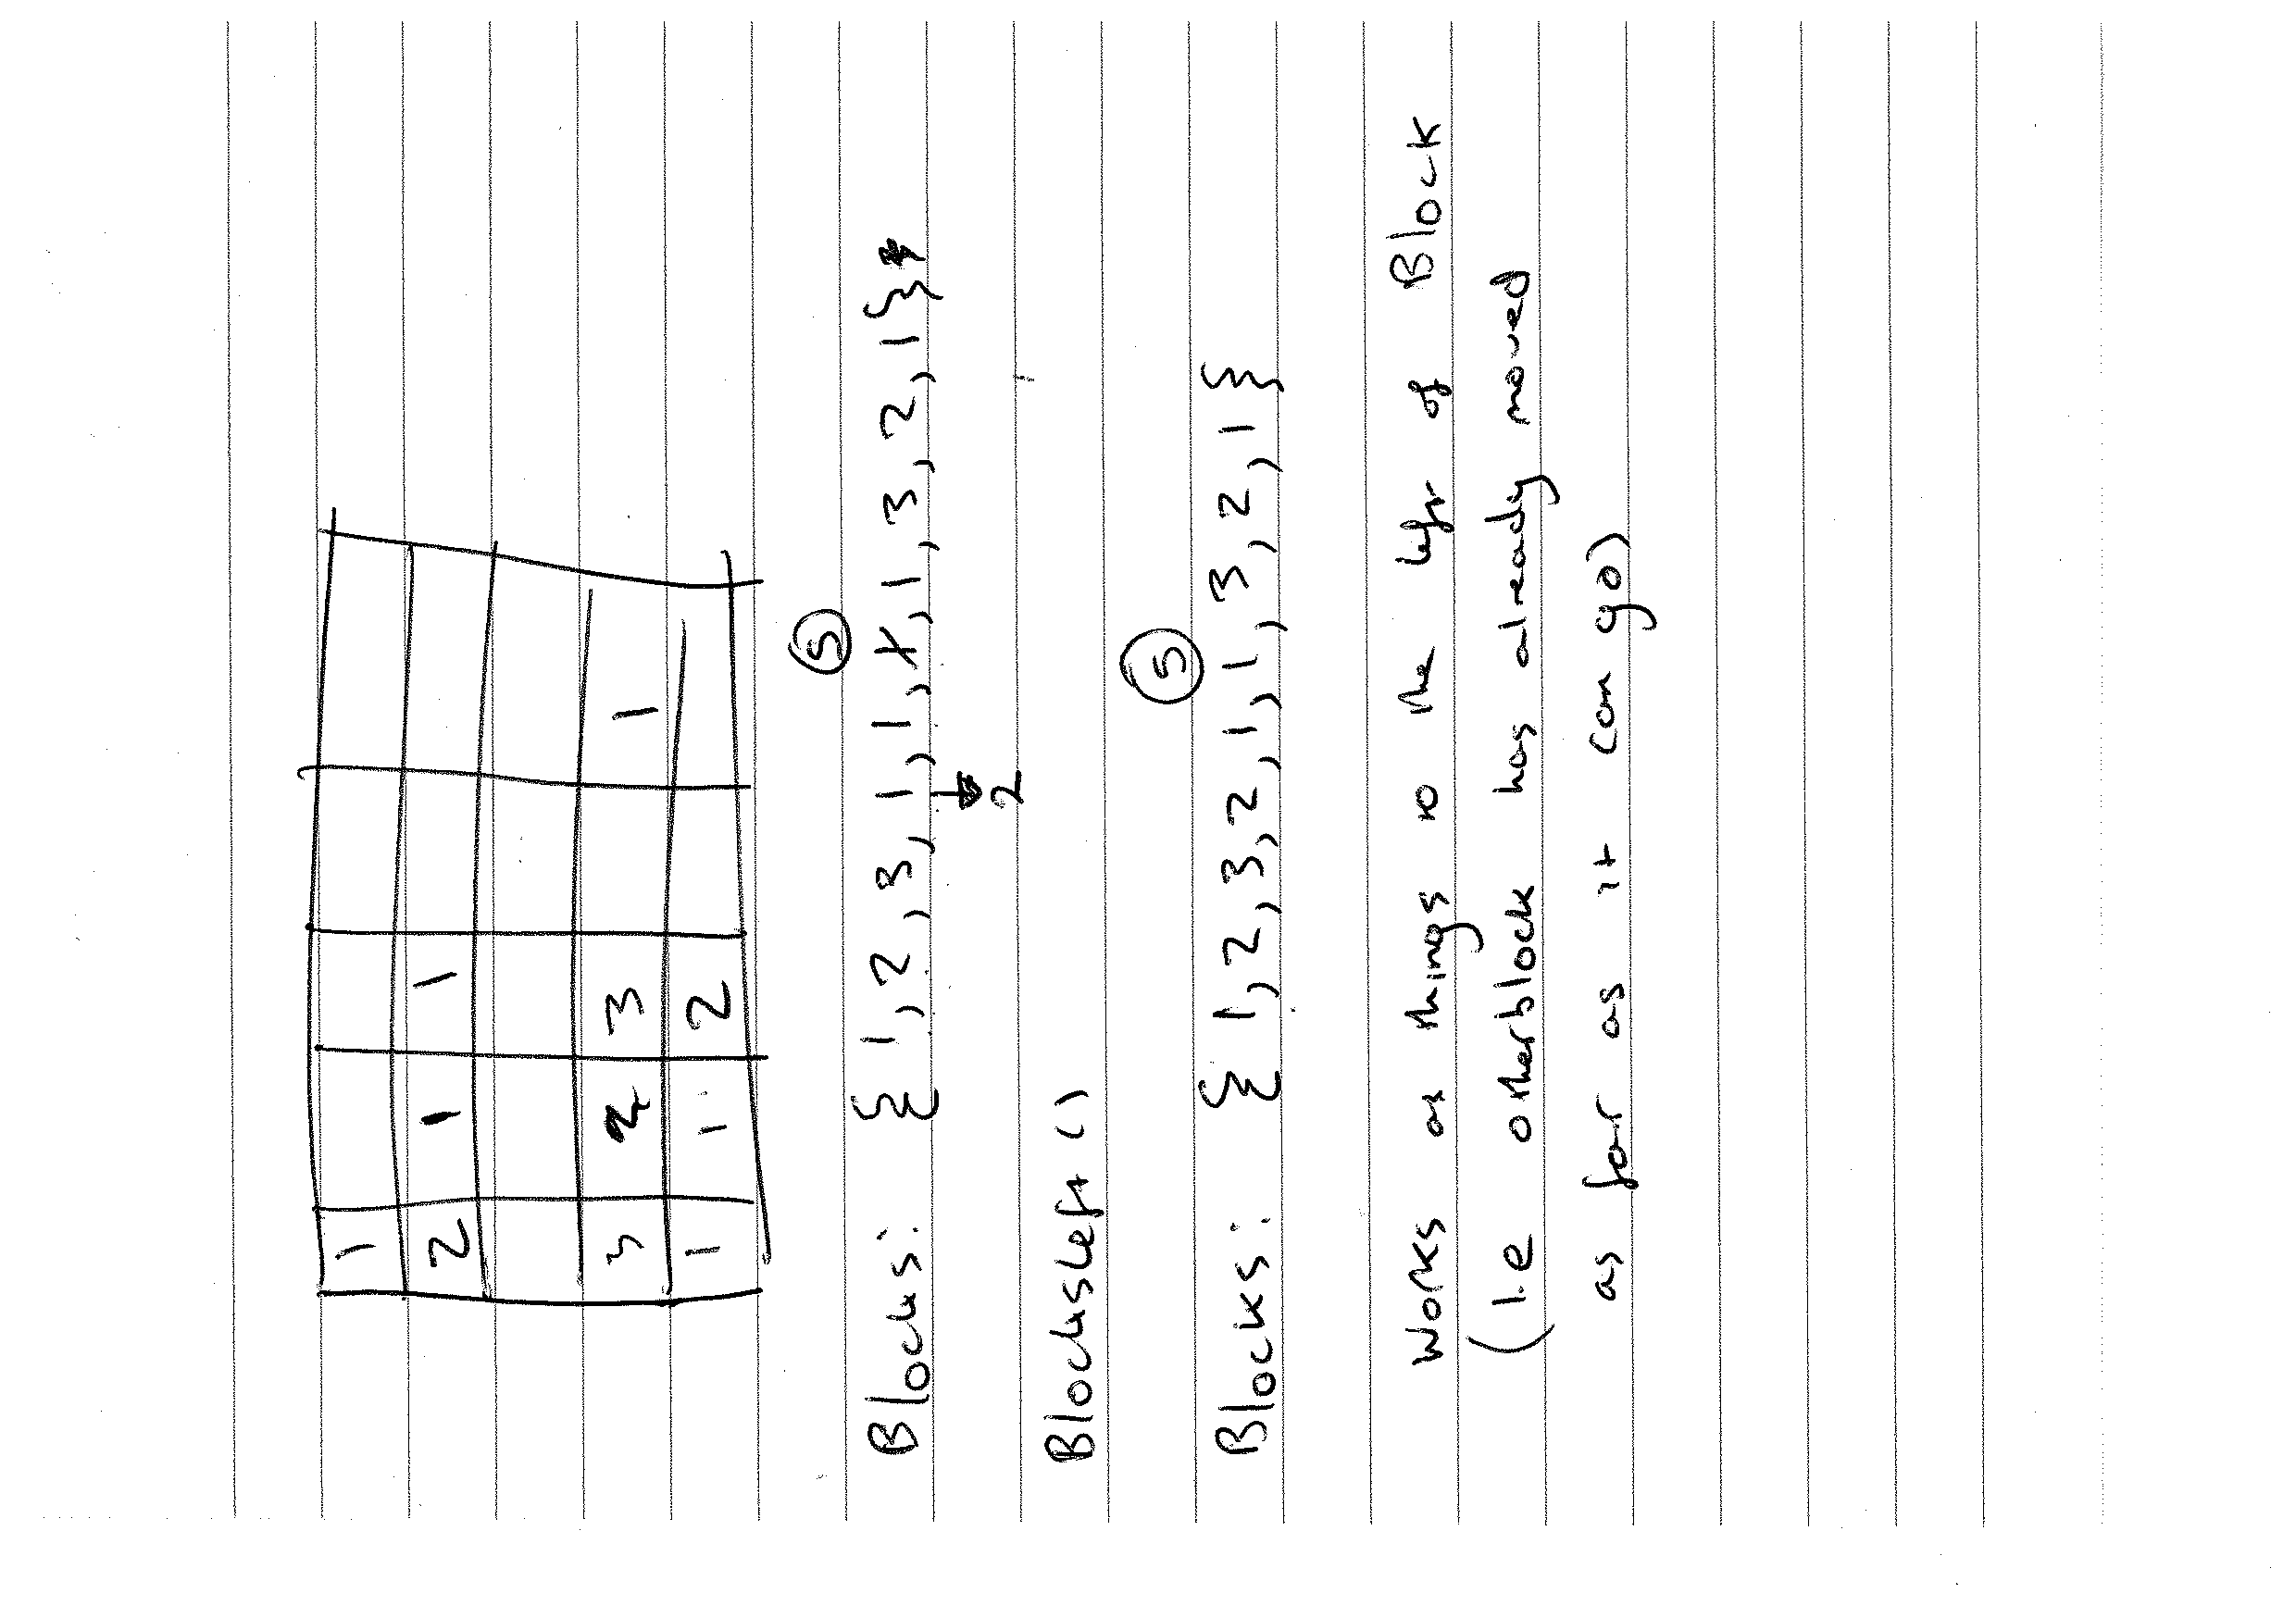 1
2 1 1
3 3 1
1 1 2
5
Blocks: { 1, 2, 3, 1, 1, 1, 1, 3, 2, 1}
2
BlocksLeft ()
5
Blocks: { 1, 2, 3, 2, 1, 1, 3, 2, 1 }
Works as things to the left of Block
(i.e otherblock has already moved
as far as it can go)